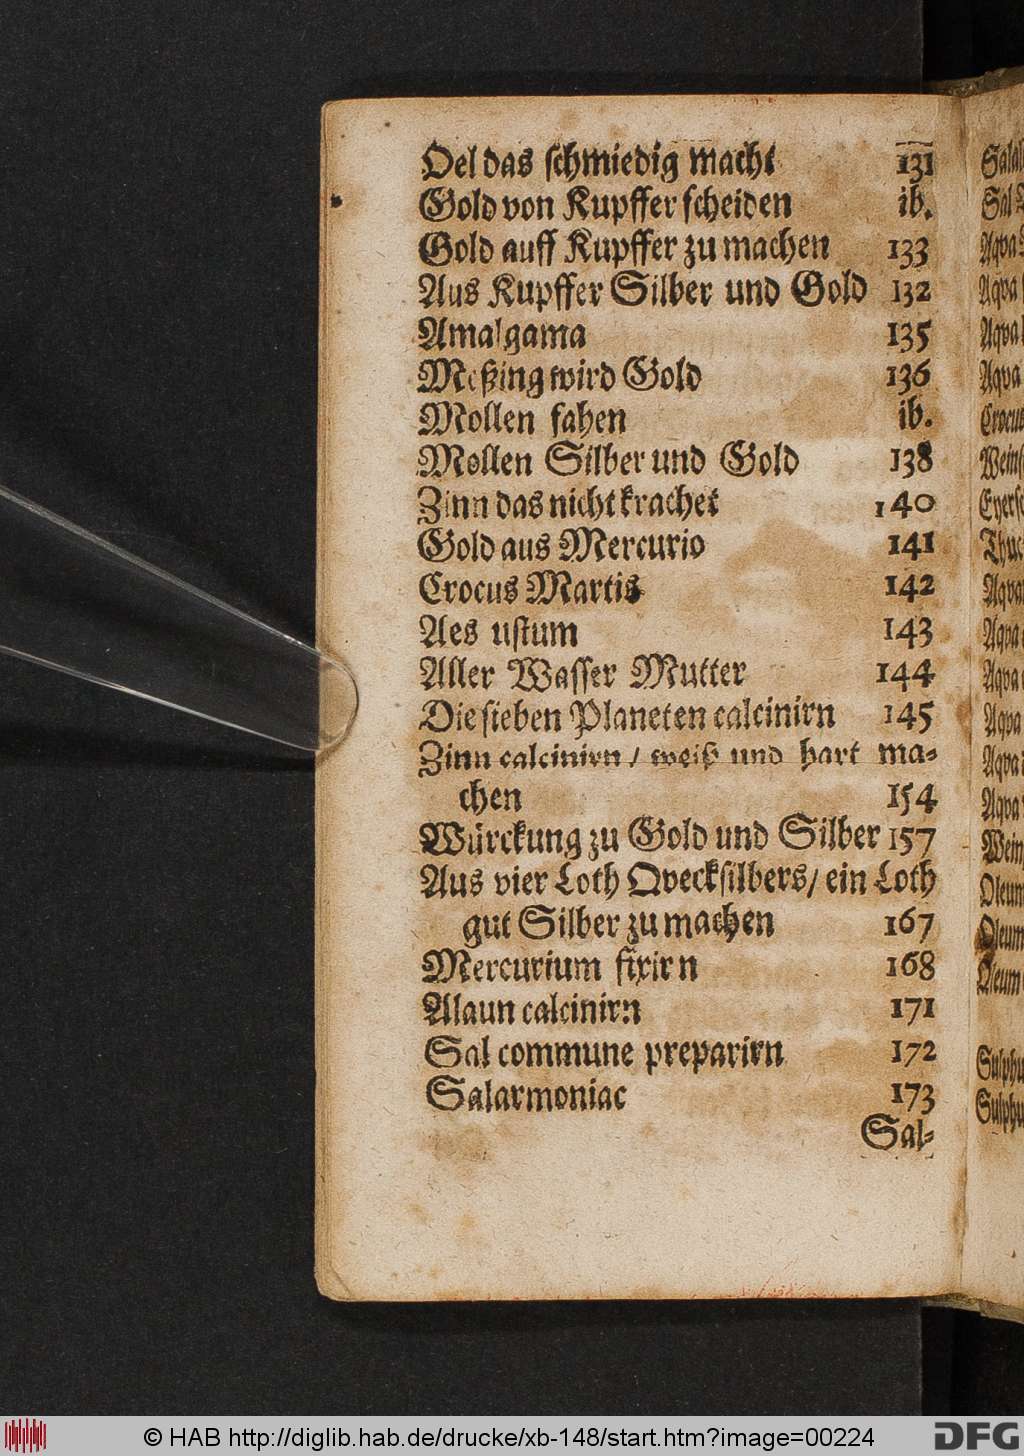 Oel das schmiedig macht 131
Gold von Kupffer scheiden ib.
Gold auff Kupffer zu machen 133
Aus Kupffer Silber und Gold 132
Amalgama 135
Meßing wird Gold 136
Mollen fahen ib.
Mollen Silber und Gold 138
Zinn das nicht krachet 140
Gold aus Mercurio 141
Crocus Martis 142
Aes ustum 143
Aller Wasser Mutter 144
Die sieben Planeten calcinirn 145
Zinn calcinirn / weiß und hart ma-
chen 154
Würckung zu Gold und Silber 157
Aus vier Loth Qvecksilbers / ein Loth
gut Silber zu machen 167
Mercurium fixirn 168
Alaun calcinirn 171
Sal commune preparirn 172
Salarmoniac 173
Sal-
Sal
Aqva
Aqva
Aqva
Aqva
Aqva
Aqva
Aqva
Aqva
Aqva
Oleum
Oleum
© HAB http://diglib.hab.de/drucke/xb-148/start.htm?image=00224
DFG